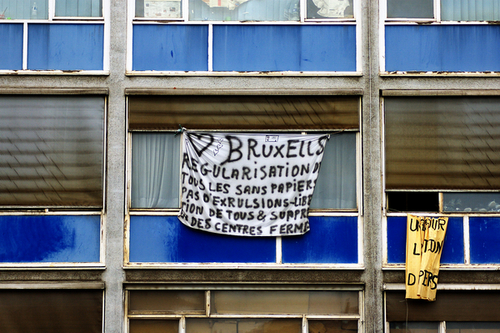 BRUXELLS
REGULARISATION D
TOUS LES SANS PAPIER
PAS D'EXPULSIONS-LIBE
TION DE TOUS & SUPPRE
DES CENTRES FERME